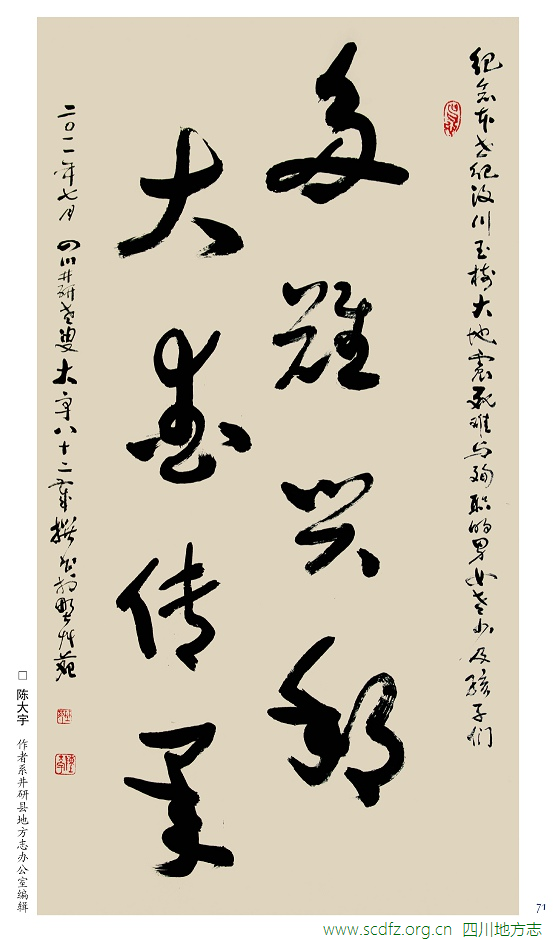 纪念本世纪汶川玉树大地震死难与殉职的男女老少及孩子们
多難兴邦
大爱传承
二〇一一年七月 四川井研老叟大宇八十二歲撰书於野艸苑
□ 陈大宇 作者系井研县地方志办公室编辑
71
www.scdfz.org.cn 四川地方志